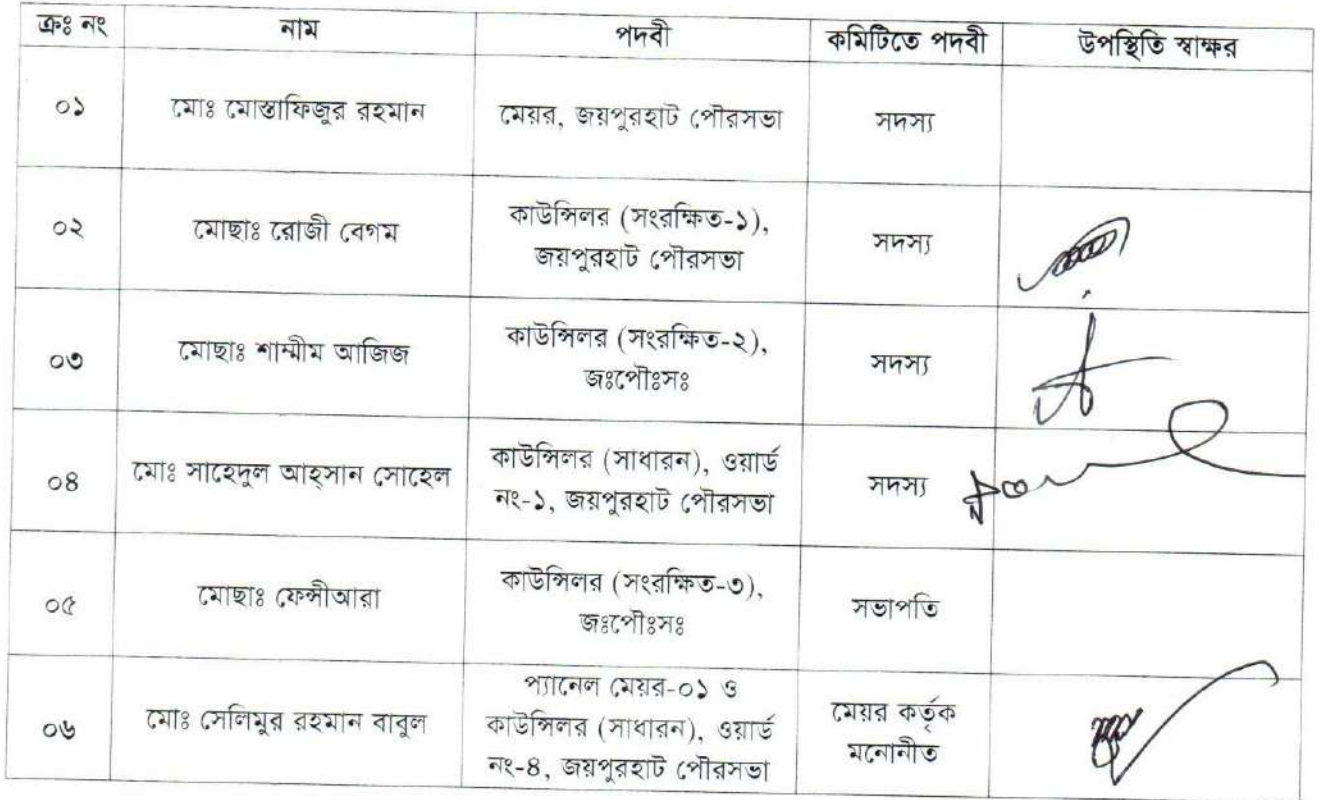 ক্রঃ নং নাম পদবী কমিটিতে পদবী উপস্থিতি স্বাক্ষর
০১ মোঃ মোস্তাফিজুর রহমান মেয়র, জয়পুরহাট পৌরসভা সদস্য
০২ মোছাঃ রোজী বেগম কাউন্সিলর (সংরক্ষিত-১), সদস্য
জয়পুরহাট পৌরসভা
০৩ মোছাঃ শাম্মীম আজিজ কাউন্সিলর (সংরক্ষিত-২), সদস্য
জঃপৌঃসঃ
০৪ মোঃ সাহেদুল আহ্সান সোহেল কাউন্সিলর (সাধারন), ওয়ার্ড সদস্য
নং-১, জয়পুরহাট পৌরসভা
০৫ মোছাঃ ফেন্সীআরা কাউন্সিলর (সংরক্ষিত-৩), সভাপতি
জঃপৌঃসঃ
০৬ মোঃ সেলিমুর রহমান বাবুল প্যানেল মেয়র-০১ ও মেয়র কর্তৃক
কাউন্সিলর (সাধারন), ওয়ার্ড মনোনীত
নং-৪, জয়পুরহাট পৌরসভা